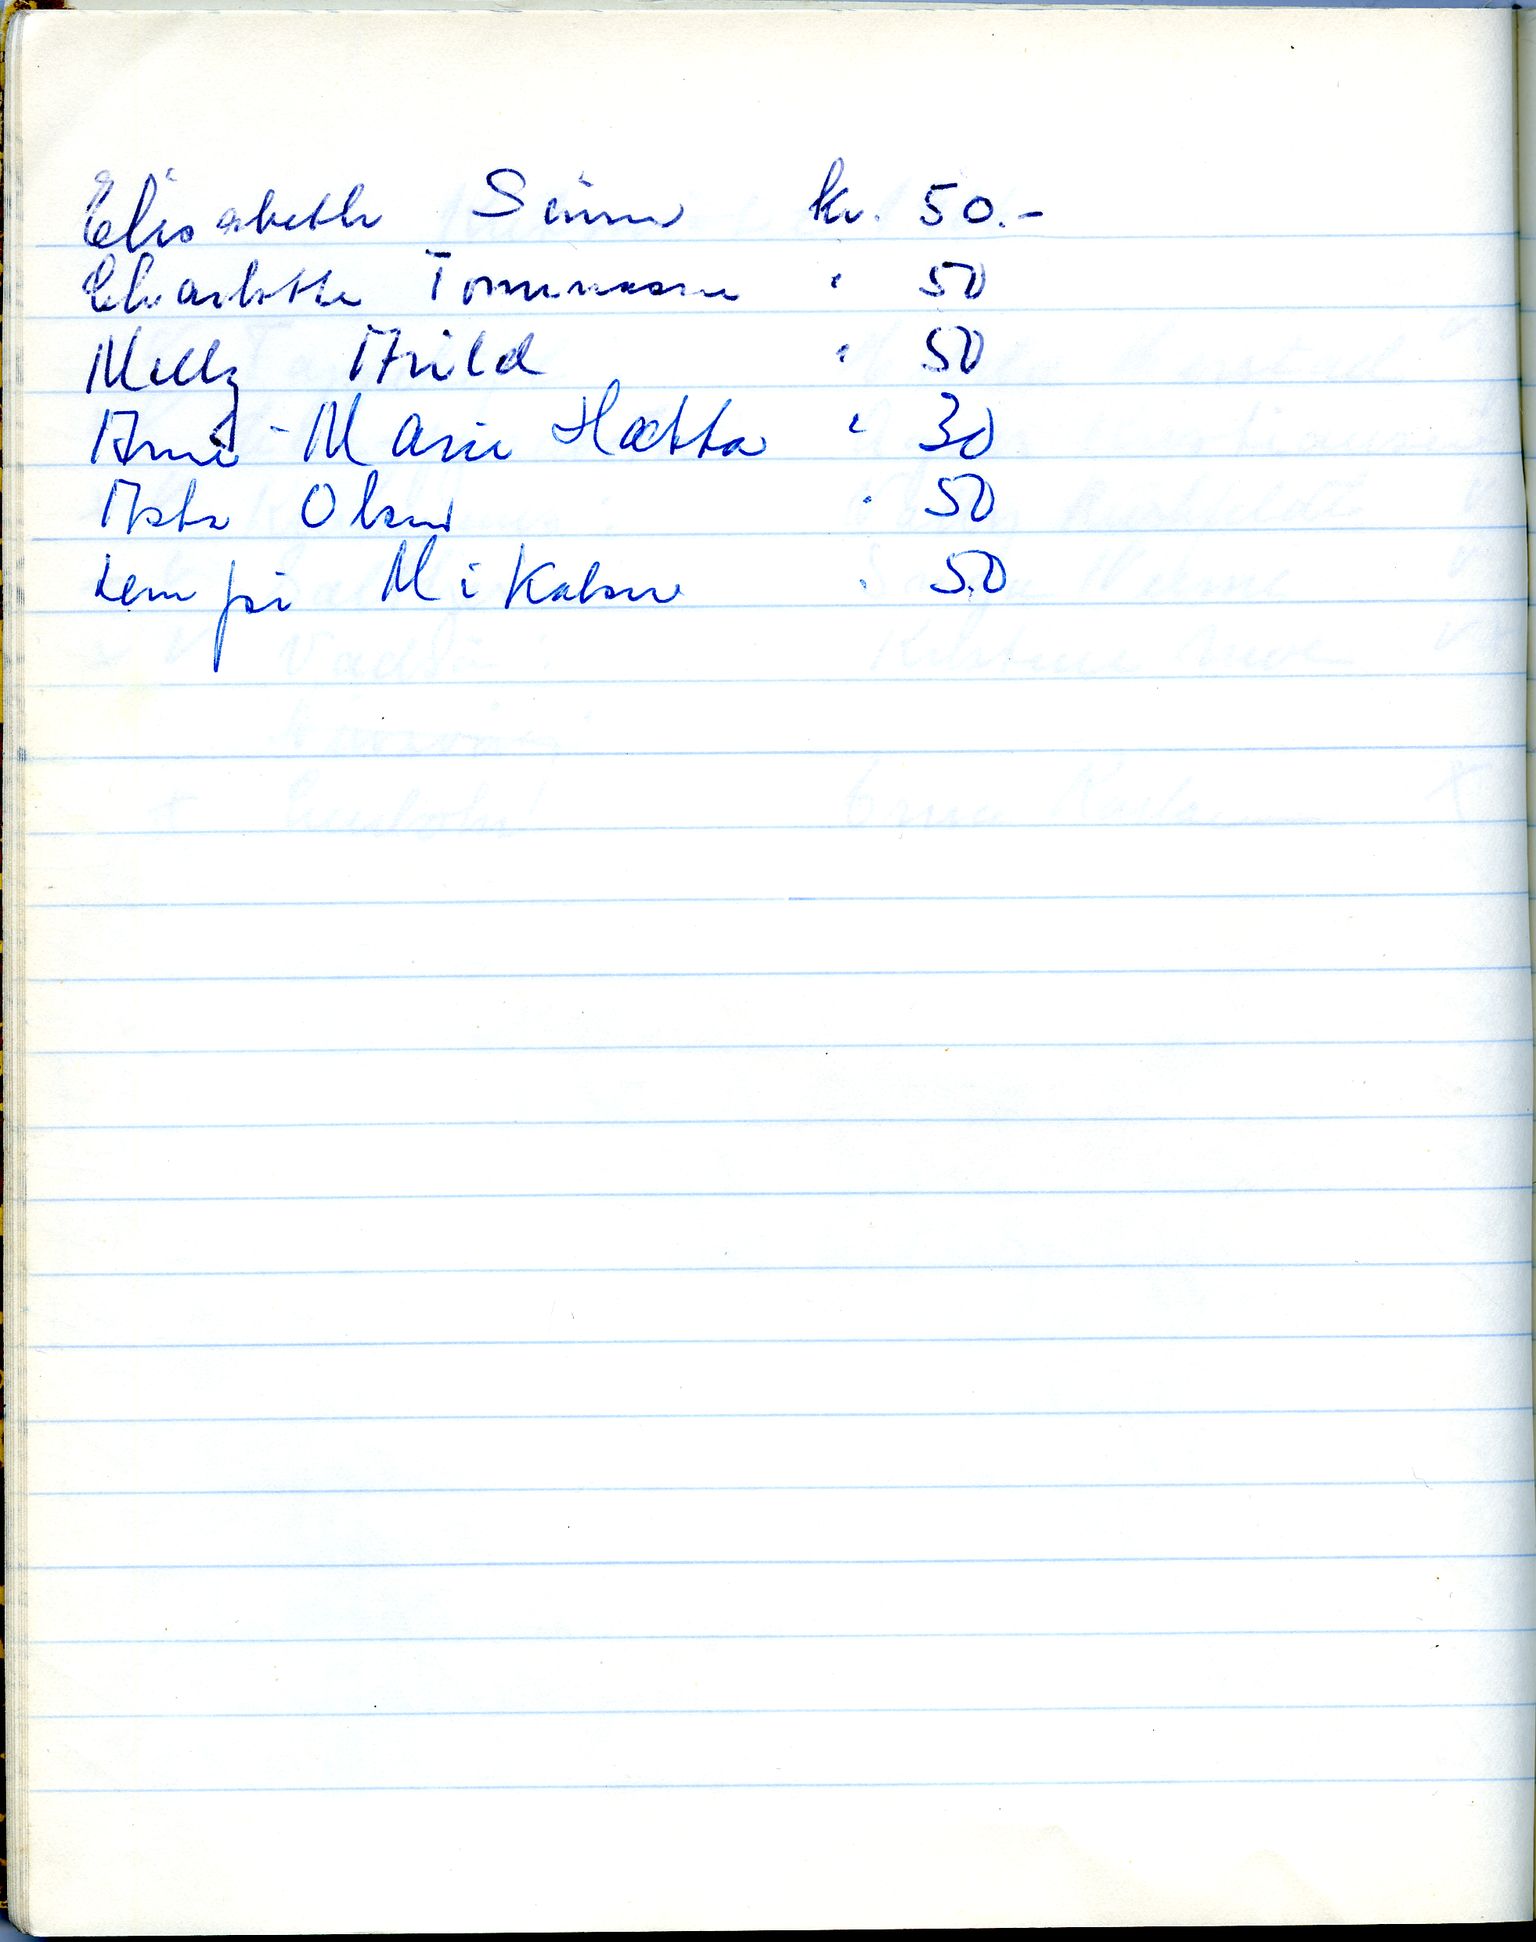 Elisabeth Simma kr. 50.-
Charlotte Tommasen " 50
Milly Arild " 50
Anne-Marie Hætta " 30
Asta Olsen " 50
Lempi Mikalsen " 50
Vadsø: